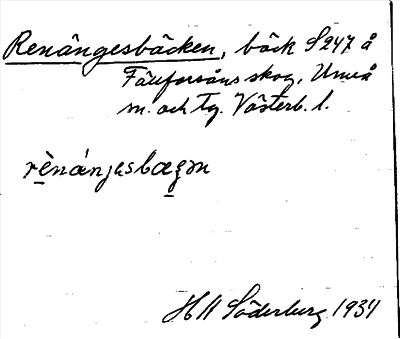 Renängesbäcken, bäck S 247 å
Fäuforsåns skog, Umeå
m. och Tg. Västerb. l.
rènánjəsbaeçəm
H H Söderberg 1934